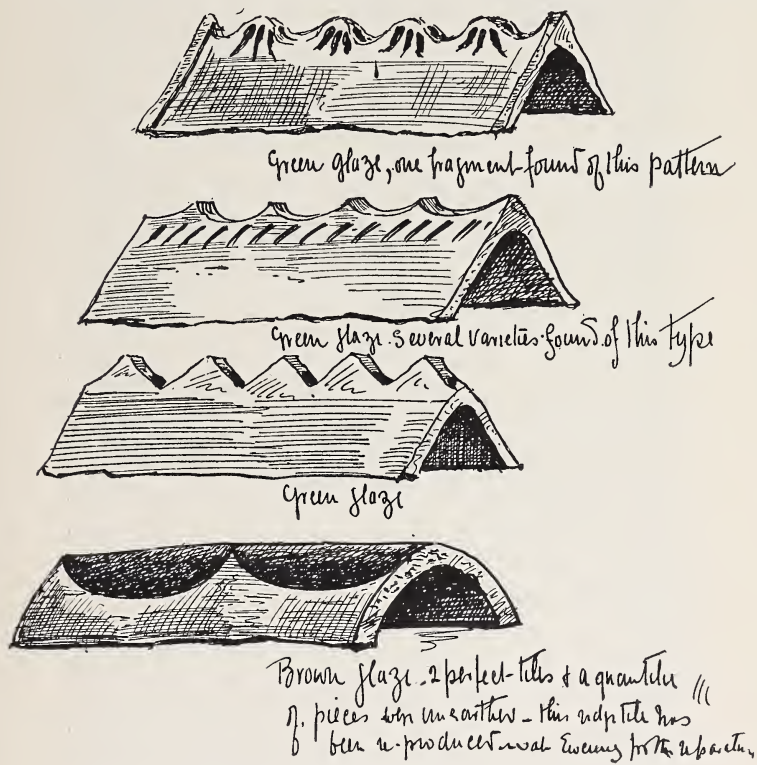 Green glaze, one fragment found of this pattern
Green glaze. Several varieties found of this type
Green glaze
Brown glaze – 2 perfect tiles & a quantity
of pieces were unearthed – this ridge tile has
been re-produced Ewenny for the reparation